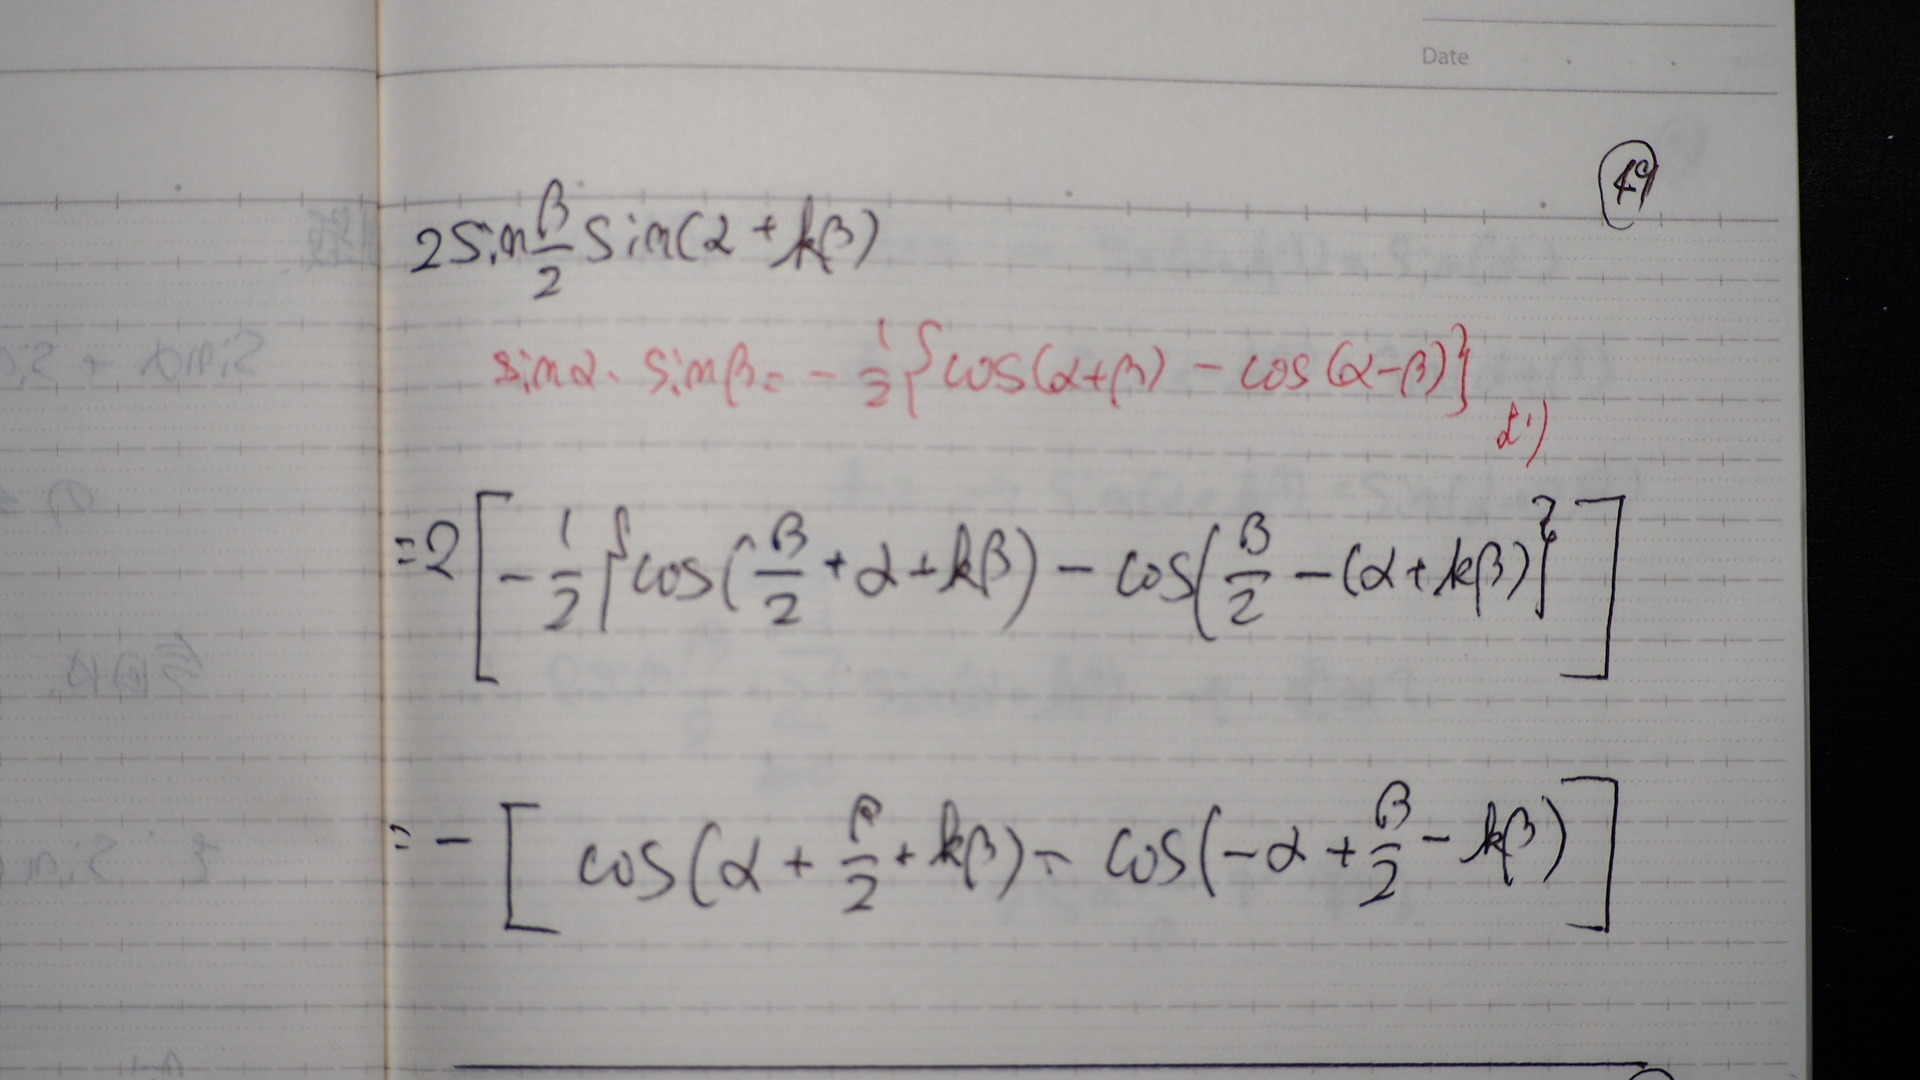 Date
49
2sin β/2 sin(α + kβ)
sinα・sinβ = - 1/2 {cos(α+β) - cos(α-β)}
より
= 2 [ - 1/2 {cos(β/2 + α + kβ) - cos(β/2 - (α + kβ)} ]
= - [ cos(α + β/2 + kβ) - cos(-α + β/2 - kβ) ]